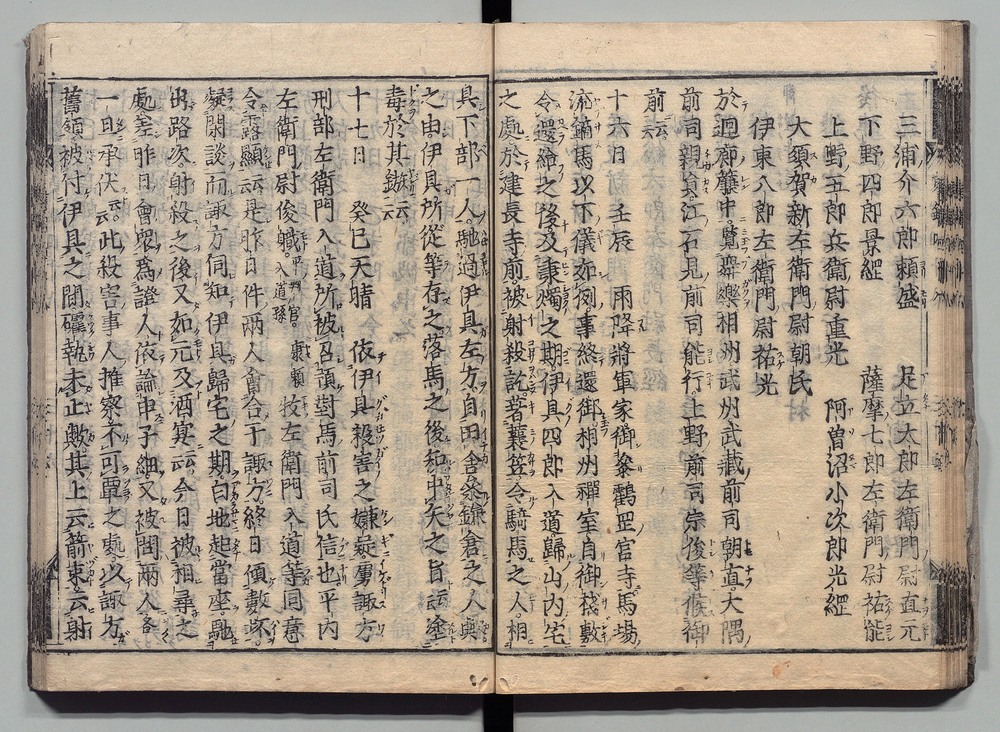 三浦介六郎頼盛　足立太郎左衛門尉直元
下野四郎景經　薩摩七郎左衛門尉祐能
上野五郎兵衛尉重光　阿曽沼小次郎光經
大須賀新左衛門尉朝氏
伊東八郎左衛門尉祐光
於廻廊簾中覽舞樂相州武州武藏前司朝直大隅
前司親貟江石見前司能行上野前司宗俊等候御
前云云
十六日壬辰　雨降將軍家御參鶴罡宮寺馬場
流鏑馬以下儀如例事終還御相州禪室自御棧敷
令還給之後及秉燭之期伊具四郎入道歸山内宅
之處於建長寺前被射殺訖著蓑笠令騎馬之人相
具下部一人馳過伊具左方自田舍參鎌倉之人與
之由伊具所從等存之落馬之後知中矢之旨云塗
毒於其鏃云云
十七日　癸巳天晴　依伊具殺害之嫌疑虜諏方
刑部左衛門入道所被召預對馬前司氏信也平内
左衛門尉俊職平判官康頼入道孫牧左衛門入道等同意
令露顯云是昨日件兩人會合于諏方終日傾數坏
凝閑談而諏方伺知伊具歸宅之期白地起當座馳
出路次射殺之後又如元及酒宴云云今日被相尋之
處差昨日會衆爲證人依論申子細又被問兩人各
一旦承伏云云此殺害事人推察不可覃之處以諏方
舊領被付伊具之間確執未止歟其上云箭束云射